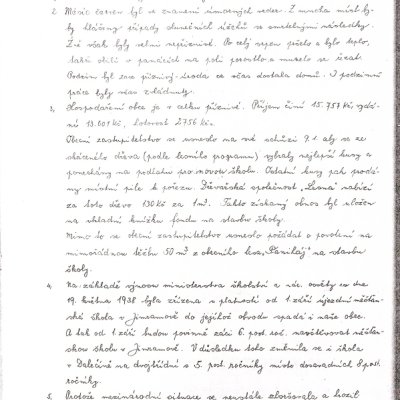 2. Měsíc červen byl ve znamení úmorných veder. Z mnoha míst by-
ly hlášeny případy slunečních úžehů se smrtelnými následky.
Žně však byly velmi nepříznivé. Po celý srpen pršelo a bylo teplo,
takže obilí v panácích na poli porostlo a muselo se
Podzim byl zase příznivý. úroda se včas dostala domů. I podzimní
práce byly včas zvládnuty.
3. Hospodaření obce je v celku příznivé. Příjem činí 15.757 Kč, vydá-
ní 13.001 Kč, hotovost 2756 Kč.
Obecní zastupitelstvo se usneslo na své schůzi 9.1. aby se ze
skáceného dřeva (podle lesního programu) vybraly nejlepší kusy a
ponechány na podlahu pro novou školu. Ostatní kusy pak prodá-
ny místní pile k pořezu. Dřevařská společnost „Lesna" nabízí
za toto dřevo 130 Kč za 1 m³. Takto získaný obnos byl uložen
na vkladní knížku fondu na stavbu školy.
Mimo to se obecní zastupitelstvo usneslo požádat o povolení na
mimořádnou těžbu 50 m³ z obecního lesa na stavbu
školy.
4. Na základě výnosu ministerstva školství a nár. osvěty ze dne
19. května 1938 byla zřízena s platností od 1. září újezdní měšťan-
ská škola v Jimramově do jejíhož obvodu spadá i naše obec.
A tak od 1. září budou povinně žáci 6. post. roč. navštěvovat měšťan-
skou školu v Jimramově. V důsledku toho změnila se i škola
v Dalečíně na dvojtřídní s 5. post. ročníky místo dosavadních 8 post.
ročníky.
5. Protože mezinárodní situace se neustále zhoršovala a hrozil